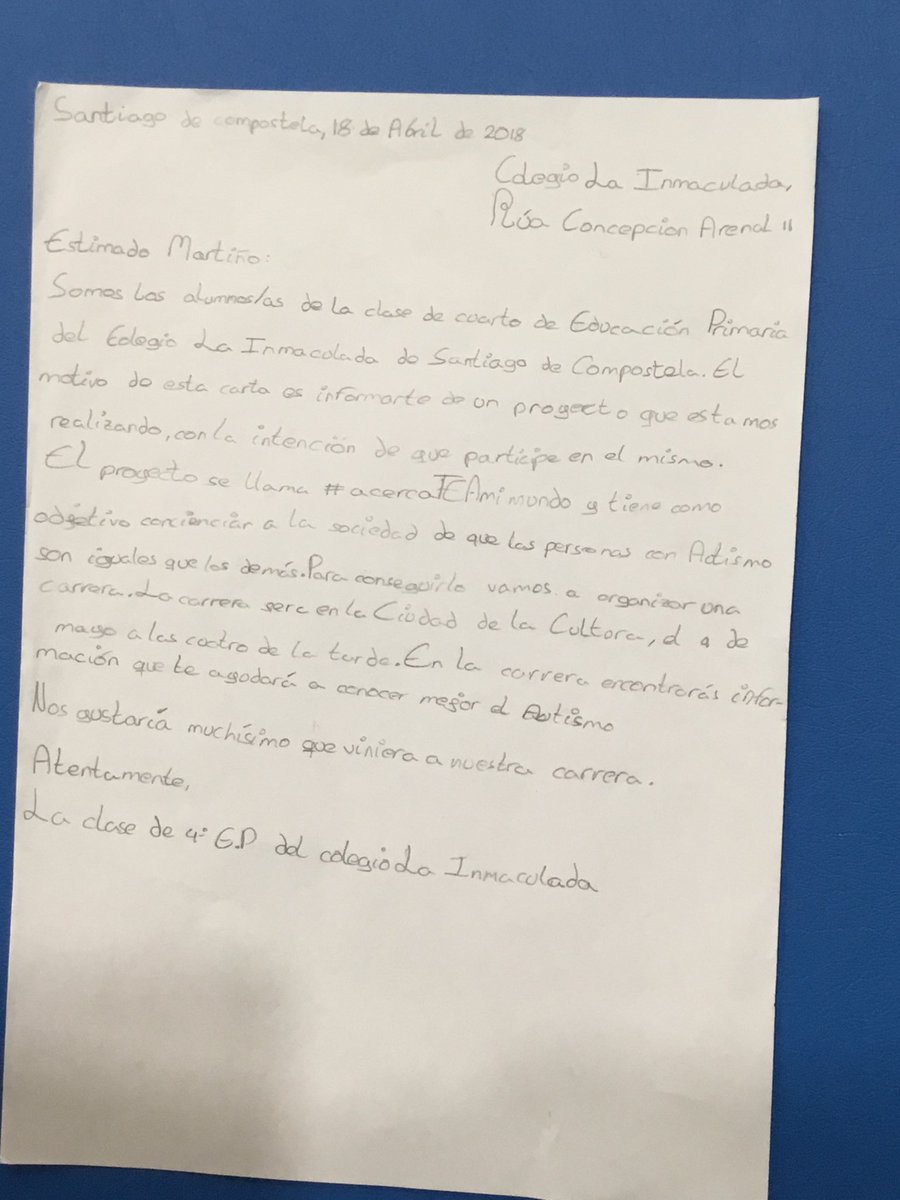 Santiago de compostela, 18 de Abril de 2018
Colegio La Inmaculada,
Rúa Concepcion Arenal 11
Estimado Martiño:
Somos los alumnos/as de la clase de cuarto de Educación Primaria
del Colegio La Inmaculada de Santiago de Compostela. El
motivo de esta carta es informarte de un proyecto que estamos
realizando, con la intención de que participe en el mismo.
El proyecto se llama #acercaTEAmimundo y tiene como
objetivo concienciar a la sociedad de que las personas con Autismo
son iguales que los demás. Para conseguirlo vamos a organizar una
carrera. La carrera sera en la Ciudad de la Cultura, el 4 de
mayo a las cuatro de la tarde. En la carrera encontrarás infor-
mación que te ayudará a conocer mejor el Autismo
Nos gustaría muchísimo que viniera a nuestra carrera.
Atentamente,
La clase de 4º E.P del colegio La Inmaculada